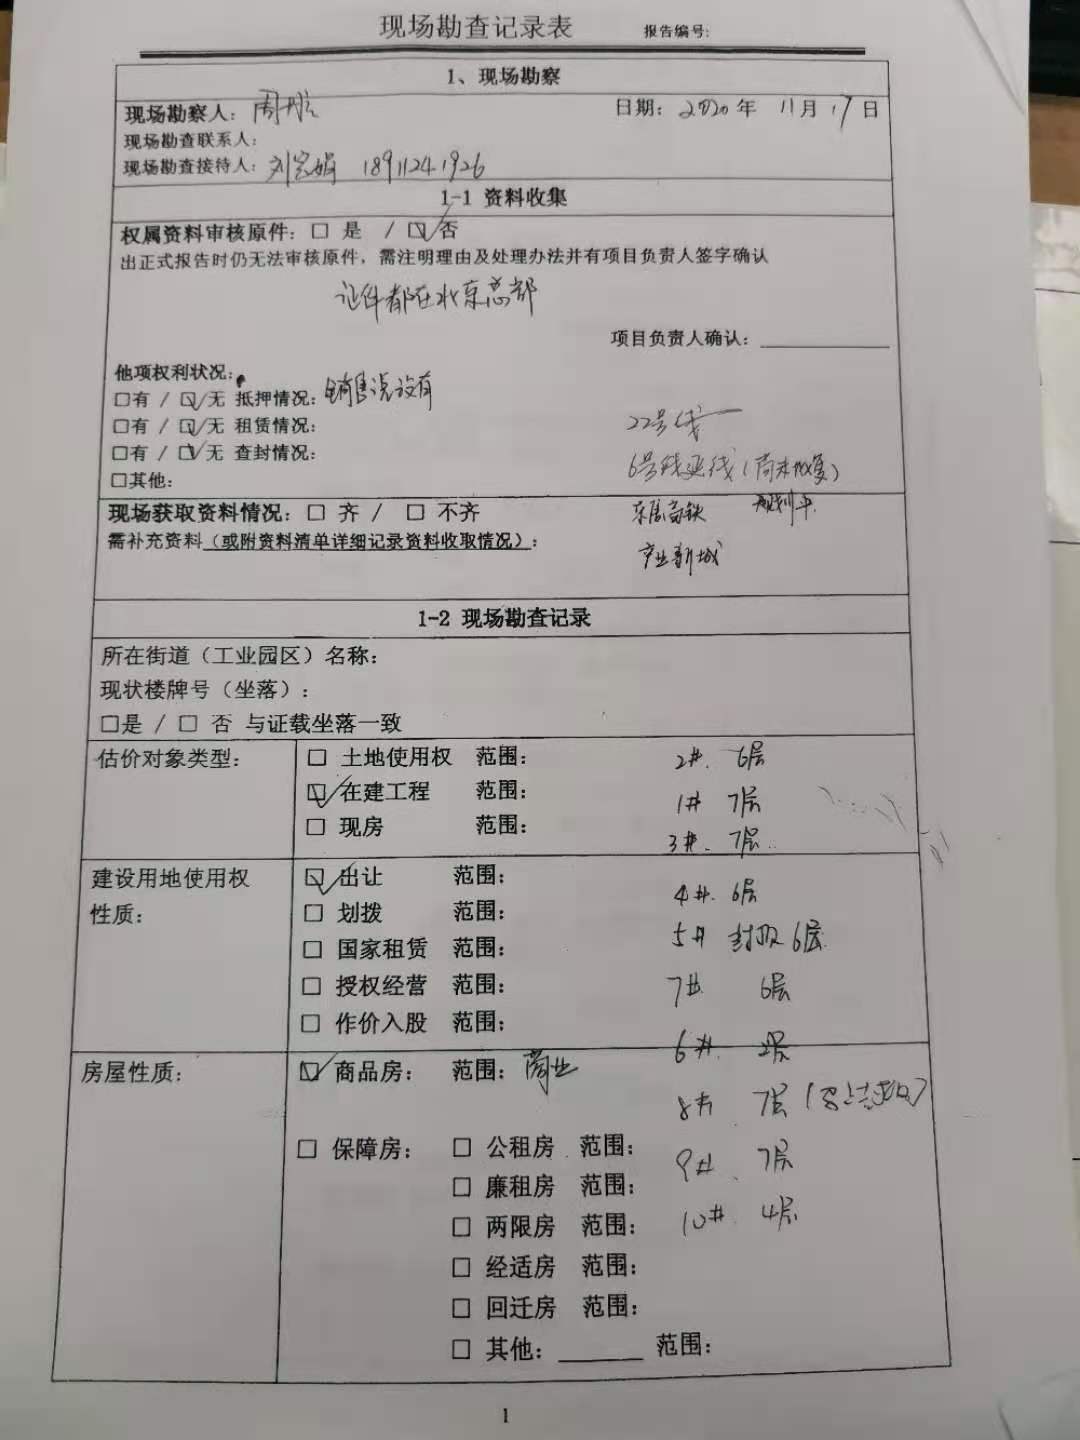 现场勘查记录表 报告编号:
1、现场勘察
现场勘察人: 周 日期: 2020年 11月 17日
现场勘查联系人:
现场勘查接待人: 刘 娟 18911241926
1-1 资料收集
权属资料审核原件: □ 是 / ☑ 否
出正式报告时仍无法审核原件,需注明理由及处理办法并有项目负责人签字确认
证件都在北京总部
项目负责人确认:
他项权利状况:
□有 / ☑无 抵押情况: 销售说没有
□有 / ☑无 租赁情况: 22号线
□有 / ☑无 查封情况: 6号线延线(尚未批复)
□其他:
现场获取资料情况: □ 齐 / □ 不齐 高铁 规划中
需补充资料(或附资料清单详细记录资料收取情况): 产业新城
1-2 现场勘查记录
所在街道(工业园区)名称:
现状楼牌号(坐落):
□是 / □ 否 与证载坐落一致
估价对象类型: □ 土地使用权 范围: 2#. 6层
☑ 在建工程 范围: 1# 7层
□ 现房 范围: 3#. 7层
建设用地使用权性质: ☑ 出让 范围: 4#. 6层
□ 划拨 范围: 5# 封顶6层
□ 国家租赁 范围:
□ 授权经营 范围: 7# 6层
□ 作价入股 范围: 6#. 层
房屋性质: ☑ 商品房: 范围: 商业
8# 7层
□ 保障房: □ 公租房 范围: 9#. 7层
□ 廉租房 范围:
□ 两限房 范围: 10#. 4层
□ 经适房 范围:
□ 回迁房 范围:
□ 其他: 范围:
1